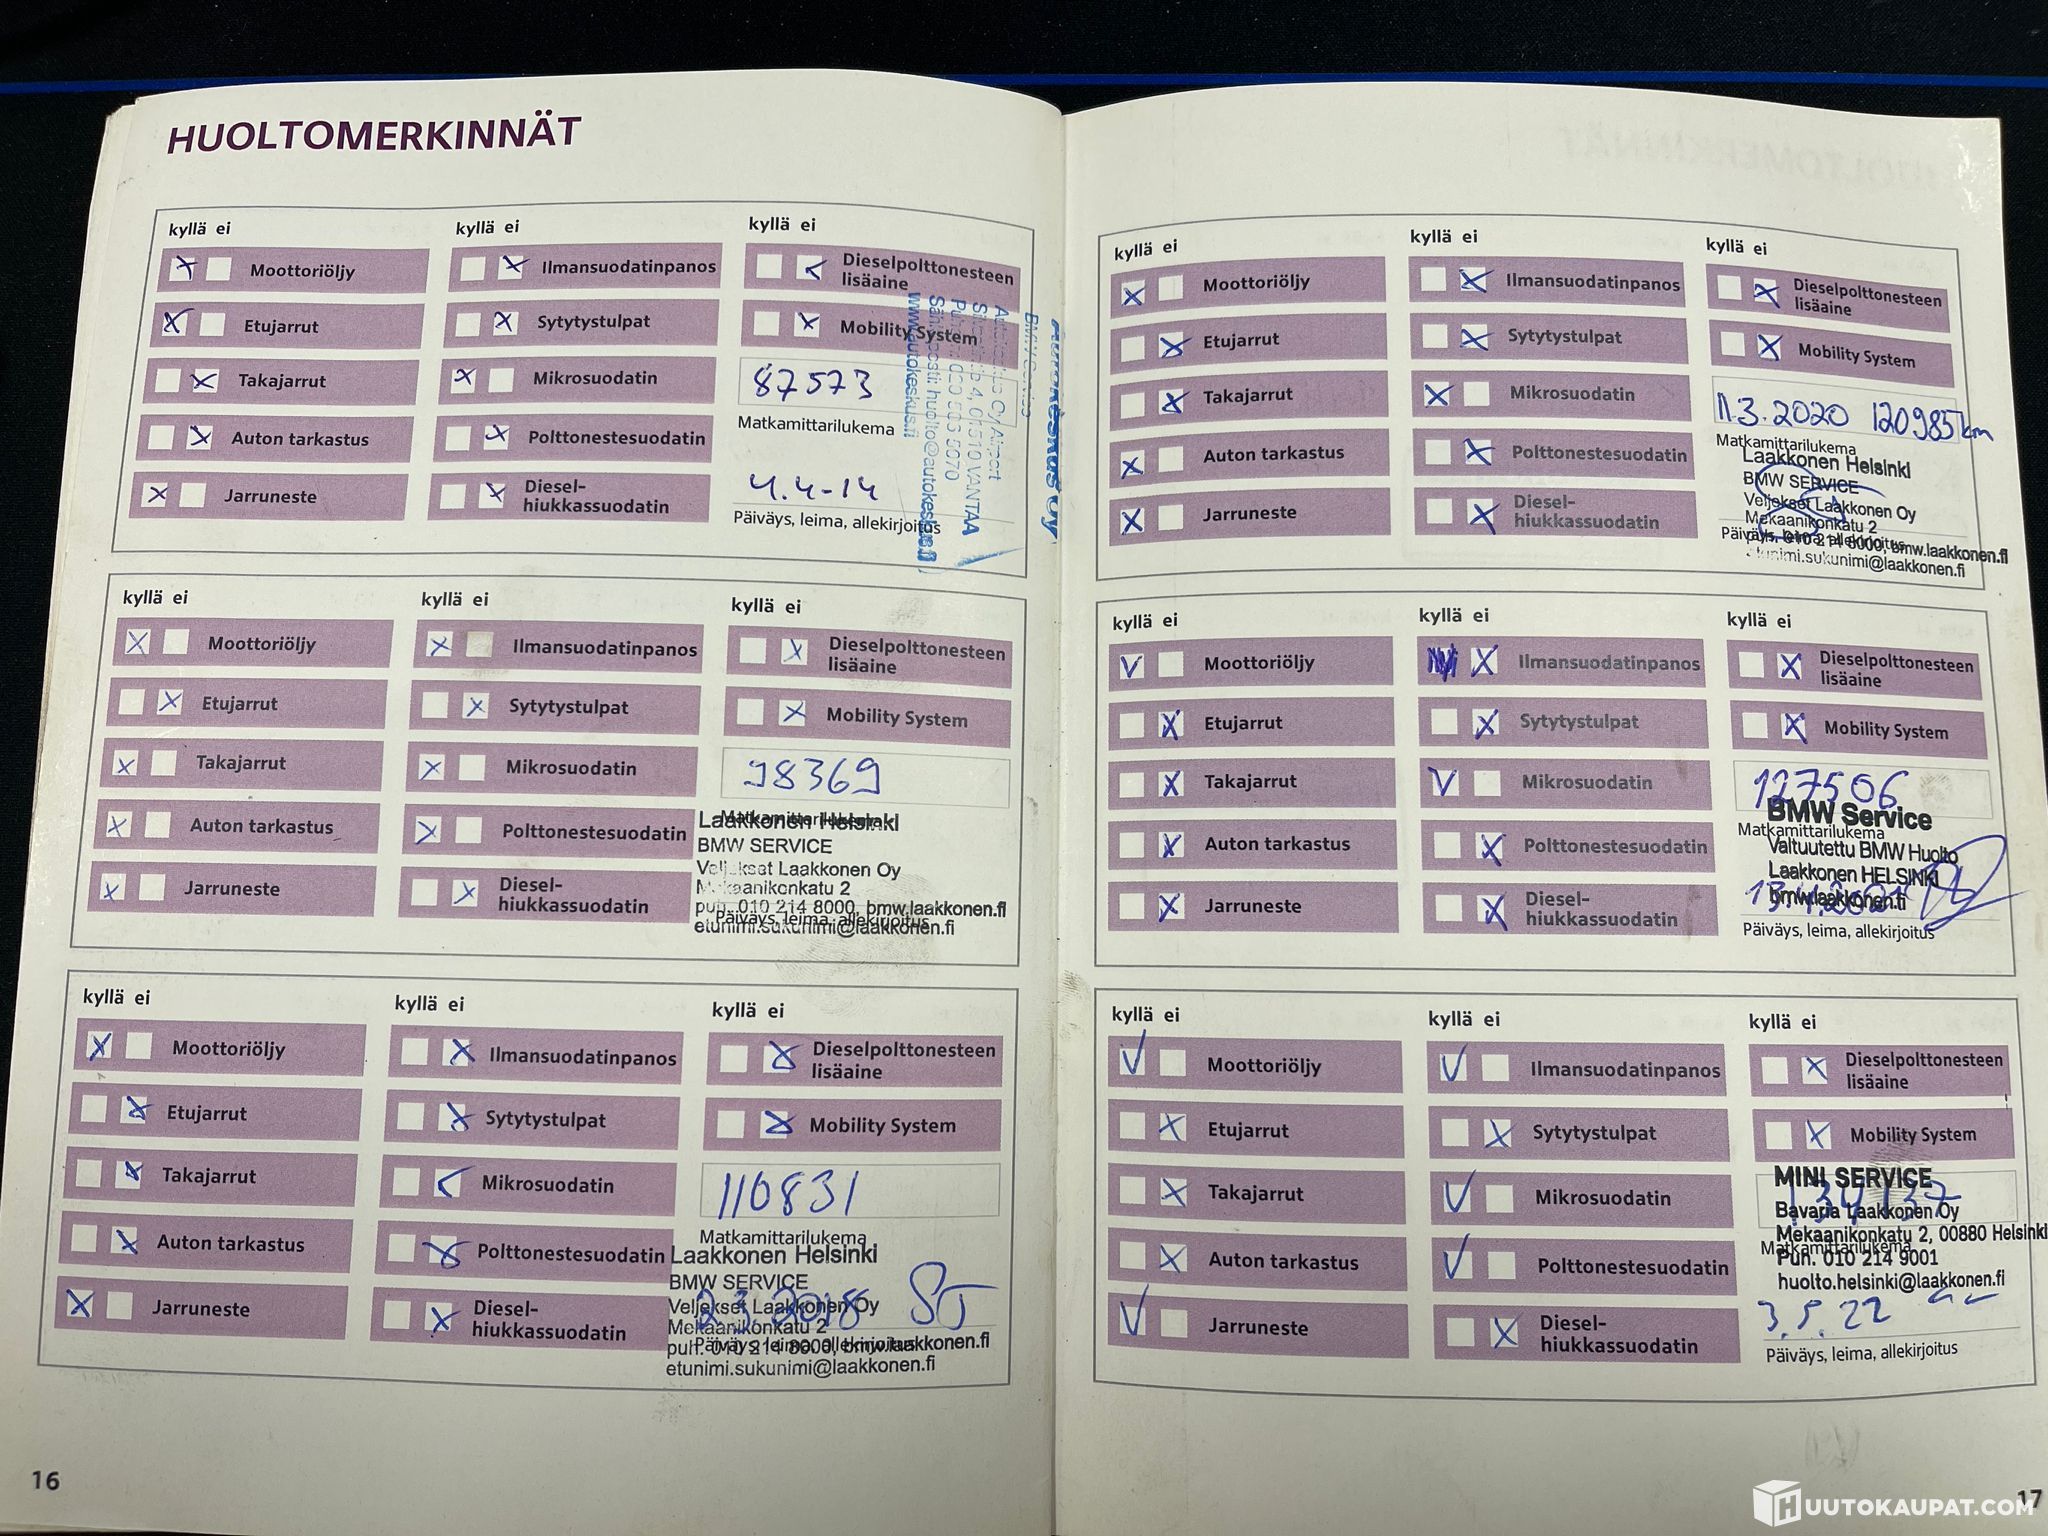 HUOLTOMERKINNÄT
kyllä ei
Moottoriöljy
Etujarrut
Takajarrut
Auton tarkastus
Jarruneste
kyllä ei
Ilmansuodatinpanos
Sytytystulpat
Mikrosuodatin
Polttonestesuodatin
Diesel-
hiukkassuodatin
kyllä ei
Dieselpolttonesteen
lisäaine
Mobility System
87573
Matkamittarilukema
4.4-14
Päiväys, leima, allekirjoitus
Autokeskus Oy
BMW Service
Autokeskus Oy Airport
01510 VANTAA
huolto@autokeskus.fi
www.autokeskus.fi
kyllä ei
Moottoriöljy
Etujarrut
Takajarrut
Auton tarkastus
Jarruneste
kyllä ei
Ilmansuodatinpanos
Sytytystulpat
Mikrosuodatin
Polttonestesuodatin
Diesel-
hiukkassuodatin
kyllä ei
Dieselpolttonesteen
lisäaine
Mobility System
98369
Matkamittarilukema
Laakkonen Helsinki
BMW SERVICE
Veljekset Laakkonen Oy
Mekaanikonkatu 2
puh. 010 214 8000, bmw.laakkonen.fi
Päiväys, leima, allekirjoitus
etunimi.sukunimi@laakkonen.fi
kyllä ei
Moottoriöljy
Etujarrut
Takajarrut
Auton tarkastus
Jarruneste
kyllä ei
Ilmansuodatinpanos
Sytytystulpat
Mikrosuodatin
Polttonestesuodatin
Diesel-
hiukkassuodatin
kyllä ei
Dieselpolttonesteen
lisäaine
Mobility System
110831
Matkamittarilukema
Laakkonen Helsinki
BMW SERVICE
Veljekset Laakkonen Oy
2.3.2018
Mekaanikonkatu 2
puh. 010 214 8000, bmw.laakkonen.fi
Päiväys, leima, allekirjoitus
etunimi.sukunimi@laakkonen.fi
16
kyllä ei
Moottoriöljy
Etujarrut
Takajarrut
Auton tarkastus
Jarruneste
kyllä ei
Ilmansuodatinpanos
Sytytystulpat
Mikrosuodatin
Polttonestesuodatin
Diesel-
hiukkassuodatin
kyllä ei
Dieselpolttonesteen
lisäaine
Mobility System
11.3.2020 120985km
Matkamittarilukema
Laakkonen Helsinki
BMW SERVICE
Veljekset Laakkonen Oy
Mekaanikonkatu 2
Päiväys, leima, allekirjoitus
puh. 010 214 8000, bmw.laakkonen.fi
etunimi.sukunimi@laakkonen.fi
kyllä ei
Moottoriöljy
Etujarrut
Takajarrut
Auton tarkastus
Jarruneste
kyllä ei
Ilmansuodatinpanos
Sytytystulpat
Mikrosuodatin
Polttonestesuodatin
Diesel-
hiukkassuodatin
kyllä ei
Dieselpolttonesteen
lisäaine
Mobility System
127506
BMW Service
Matkamittarilukema
Valtuutettu BMW Huolto
Laakkonen HELSINKI
bmw.laakkonen.fi
Päiväys, leima, allekirjoitus
kyllä ei
Moottoriöljy
Etujarrut
Takajarrut
Auton tarkastus
Jarruneste
kyllä ei
Ilmansuodatinpanos
Sytytystulpat
Mikrosuodatin
Polttonestesuodatin
Diesel-
hiukkassuodatin
kyllä ei
Dieselpolttonesteen
lisäaine
Mobility System
MINI SERVICE
134137
Bavaria Laakkonen Oy
Mekaanikonkatu 2, 00880 Helsinki
Matkamittarilukema
Puh. 010 214 9001
huolto.helsinki@laakkonen.fi
3.5.22
Päiväys, leima, allekirjoitus
17
HUUTOKAUPAT.COM